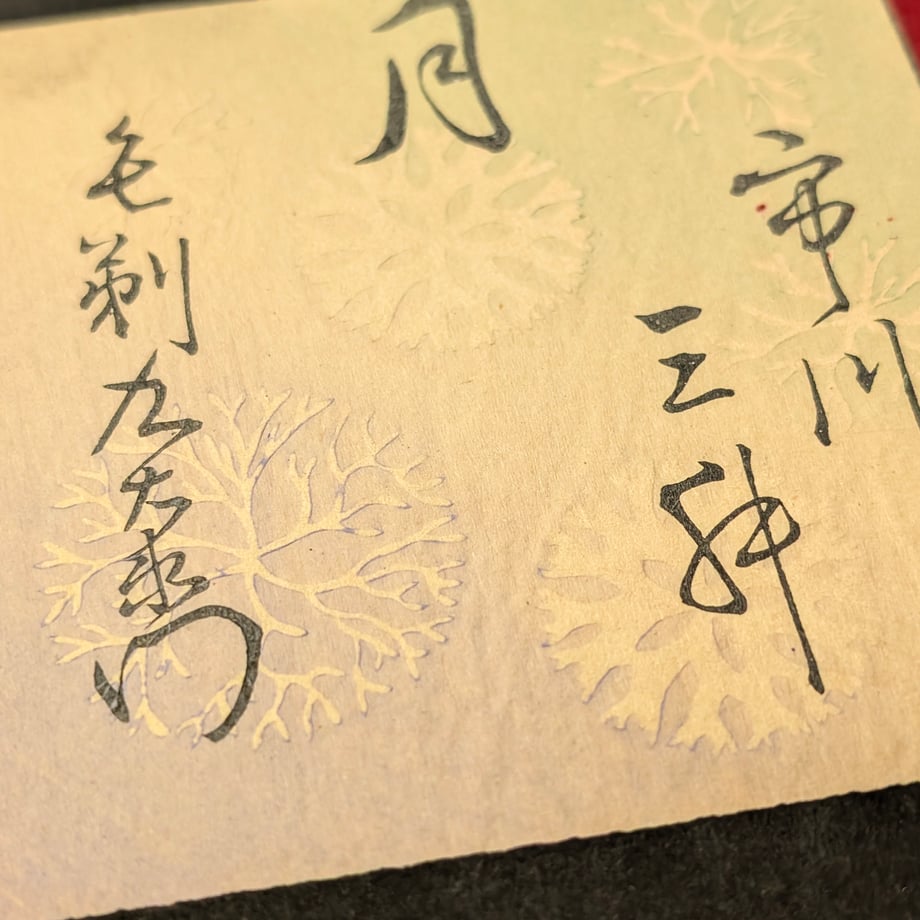 市川
三舛
月
毛剃九右衛門